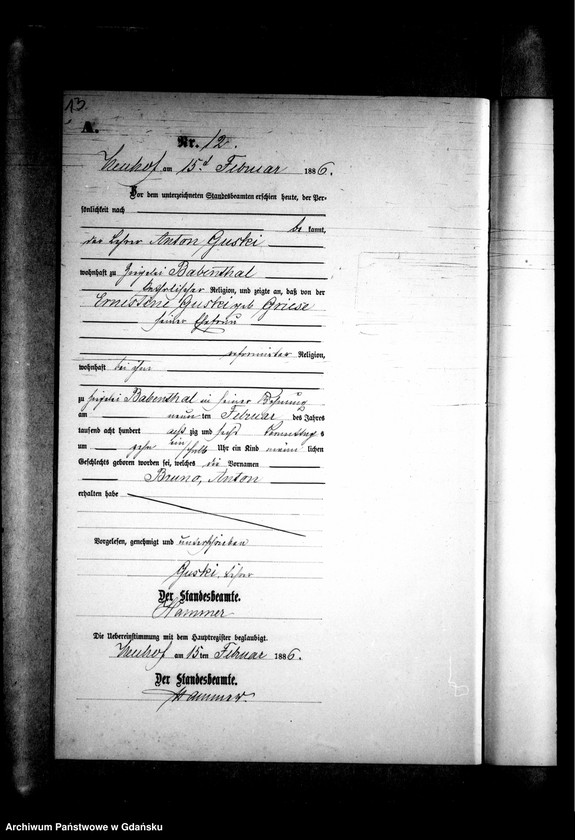 13.
A.
Nr. 12.
Neuhof am 15. Februar 1886.
Vor dem unterzeichneten Standesbeamten erschien heute, der Per-
sönlichkeit nach
be kannt,
der Lehrer Anton Guski
wohnhaft zu Babenthal
katholischer Religion, und zeigte an, daß von der
Ernestine Guski geb. Griese
seiner Ehefrau
reformirter Religion,
wohnhaft bei ihm
zu Babenthal in seiner Wohnung
am neun ten Februar des Jahres
tausend acht hundert acht zig und sechs
um zehn ein halb Uhr ein Kind männ lichen
Geschlechts geboren worden sei, welches die Vornamen
Bruno, Anton
erhalten habe
Vorgelesen, genehmigt und unterschrieben
Guski, Lehrer
Der Standesbeamte.
Hammer
Die Uebereinstimmung mit dem Hauptregister beglaubigt.
Neuhof am 15 ten Februar 1886.
Der Standesbeamte.
Hammer.
Archiwum Państwowe w Gdańsku